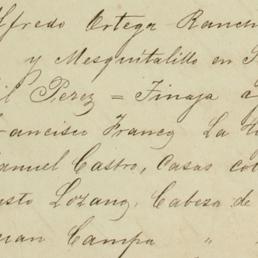 Alfredo Ortega Ranch
y Mesquitalillo en
il Perez = Tinaja a
Francisco Franco La
anuel Castro, Casas co
usto Lozano, Cabeza de
Juan Campa " "